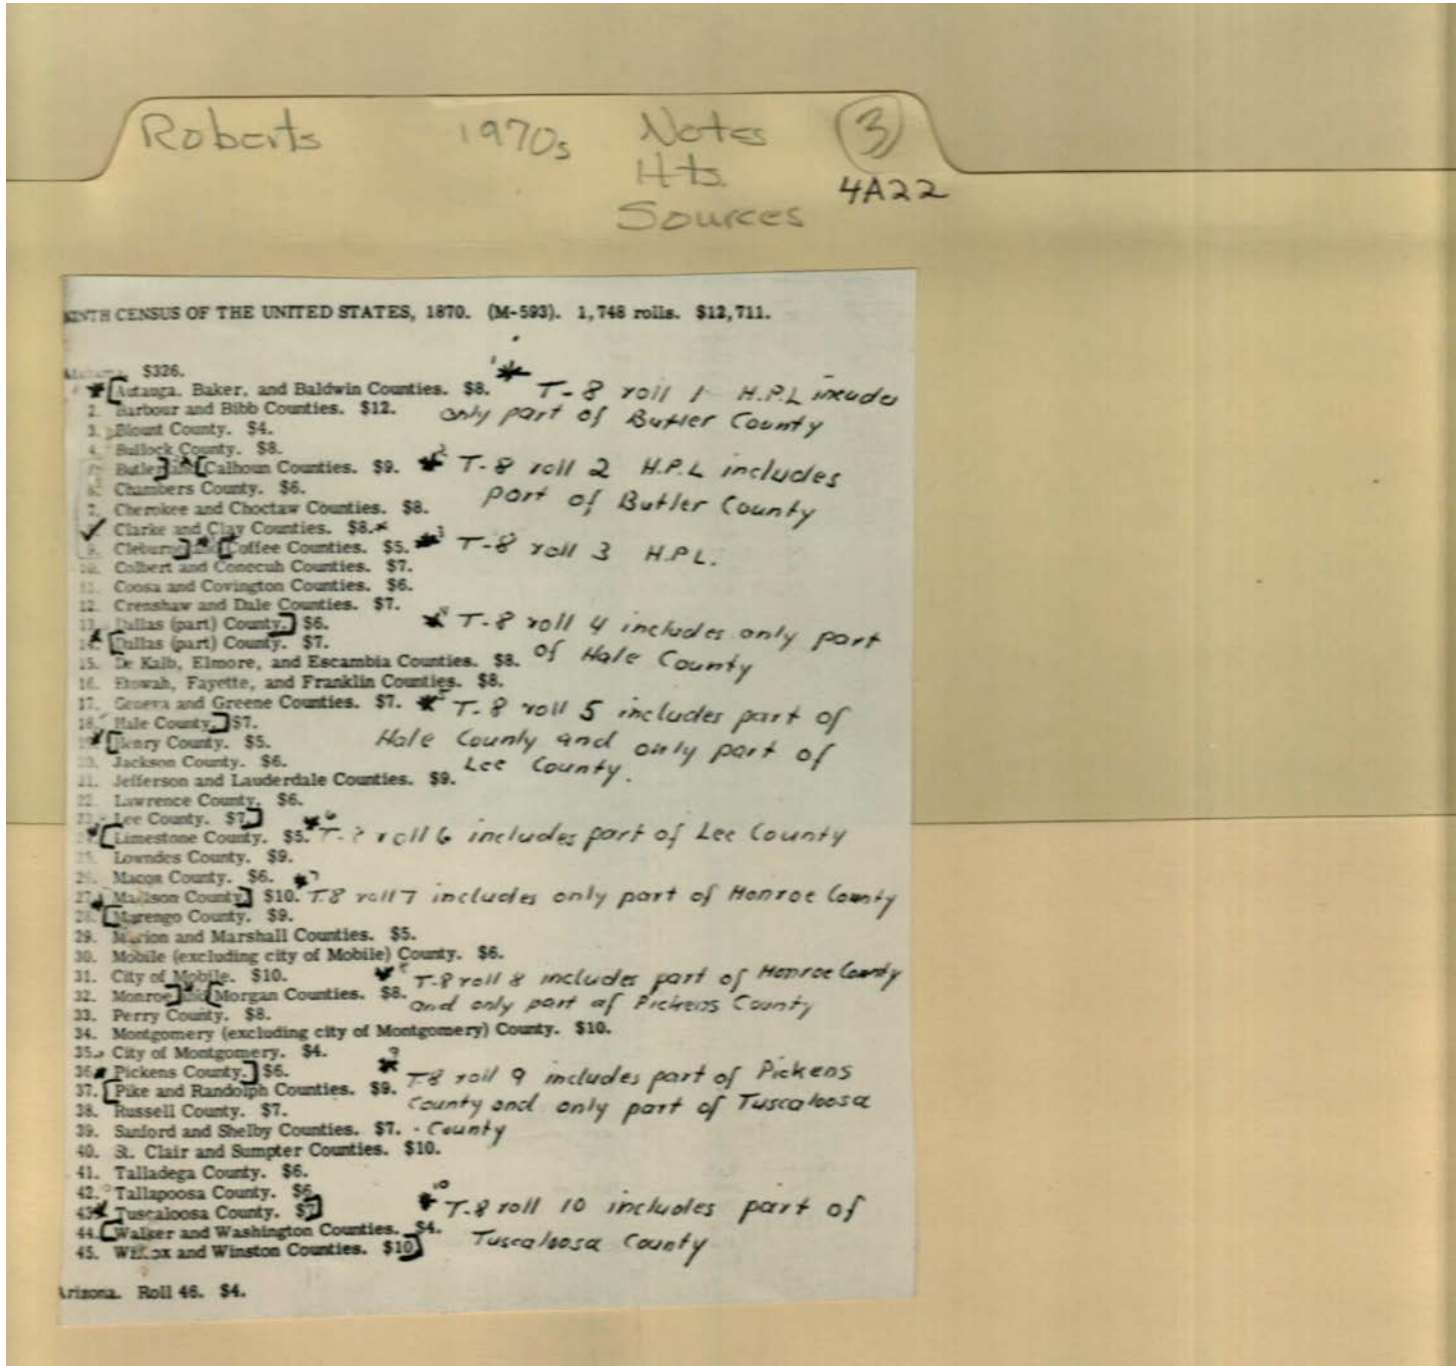 Roberts 1970s Notes 3
Hts.
4A22
Sources
CENSUS OF THE UNITED STATES, 1870. (M-593). 1,748 rolls. $12,711.
$326.
Autauga, Baker, and Baldwin Counties. $8. 1 * T-8 roll 1 H.P.L incudes
2. Barbour and Bibb Counties. $12. only part of Butler County
3. Blount County. $4.
4. Bullock County. $8.
Butler] and [Calhoun Counties. $9. *2 T-8 roll 2 H.P.L includes
6. Chambers County. $6. part of Butler County
7. Cherokee and Choctaw Counties. $8.
✓ Clarke and Clay Counties. $8.*
9. Cleburne] and [Coffee Counties. $5. *3 T-8 roll 3 H.P.L.
10. Colbert and Conecuh Counties. $7.
11. Coosa and Covington Counties. $6.
12. Crenshaw and Dale Counties. $7.
13. Dallas (part) County.] $6. *4 T-8 roll 4 includes only part
14. [Dallas (part) County. $7. of Hale County
15. De Kalb, Elmore, and Escambia Counties. $8.
16. Etowah, Fayette, and Franklin Counties. $8.
17. Geneva and Greene Counties. $7. *5 T-8 roll 5 includes part of
18. Hale County.] $7. Hale County and only part of
19. [Henry County. $5. Lee County.
20. Jackson County. $6.
21. Jefferson and Lauderdale Counties. $9.
22. Lawrence County. $6.
23. Lee County. $7.]
[Limestone County. $5. *6 T-8 roll 6 includes part of Lee County
25. Lowndes County. $9.
26. Macon County. $6. *7
27. Madison County.] $10. T.8 roll 7 includes only part of Monroe County
28. [Marengo County. $9.
29. Marion and Marshall Counties. $5.
30. Mobile (excluding city of Mobile) County. $6.
31. City of Mobile. $10. *8 T-8 roll 8 includes part of Monroe County
32. Monroe] and [Morgan Counties. $8. and only part of Pickens County
33. Perry County. $8.
34. Montgomery (excluding city of Montgomery) County. $10.
35. City of Montgomery. $4. *9
36. Pickens County.] $6. T8 roll 9 includes part of Pickens
37. [Pike and Randolph Counties. $9. County and only part of Tuscaloosa
38. Russell County. $7.
39. Sanford and Shelby Counties. $7. - County
40. St. Clair and Sumpter Counties. $10.
41. Talladega County. $6.
42. Tallapoosa County. $6.
43. Tuscaloosa County. $7] *10 T-8 roll 10 includes part of
44. [Walker and Washington Counties. $4. Tuscaloosa County
45. Wilcox and Winston Counties. $10]
Arizona. Roll 46. $4.